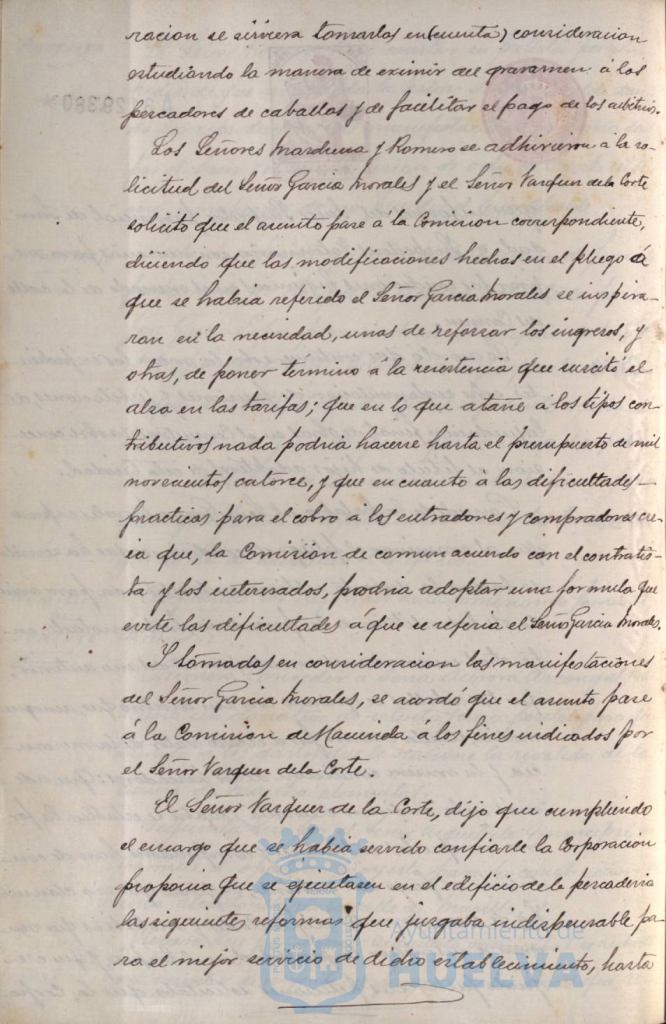 racion se sirviera tomarlos en (cuenta) consideracion
estudiando la manera de eximir del gravamen á los
pescadores de caballas y de facilitar el pago de los arbitrios.
Los Señores Marchena y Romero se adhirieron á la so-
licitud del Señor Garcia Morales y el Señor Vazquez de la Corte
solicitó que el asunto pase á la Comision correspondiente,
diciendo que las modificaciones hechas en el pliego á
que se habia referido el Señor Garcia Morales se inspira-
ran en la necesidad, unas de reforzar los ingresos, y
otras, de poner término á la resistencia que suscitó el
alza en las tarifas; que en lo que atañe á los tipos con-
tributivos nada podria hacerse hasta el presupuesto de mil
novecientos catorce, y que en cuanto á las dificultades
practicas para el cobro á los entradores y compradores cre-
ia que, la Comision de comun acuerdo con el contratis-
ta y los interesados, podria adoptar una formula que
evite las dificultades á que se referia el Señor Garcia Morales.
Y tomadas en consideracion las manifestaciones
del Señor Garcia Morales, se acordó que el asunto pase
á la Comision de Hacienda á los fines indicados por
el Señor Vazquez de la Corte.
El Señor Vazquez de la Corte, dijo que cumpliendo
el encargo que se habia servido confiarle la Corporacion
proponia que se ejecutasen en el edificio de la pescaderia
las siguientes reformas que juzgaba indispensable pa-
ra el mejor servicio de dicho establecimiento, hasta
Ayuntamiento de
HUELVA